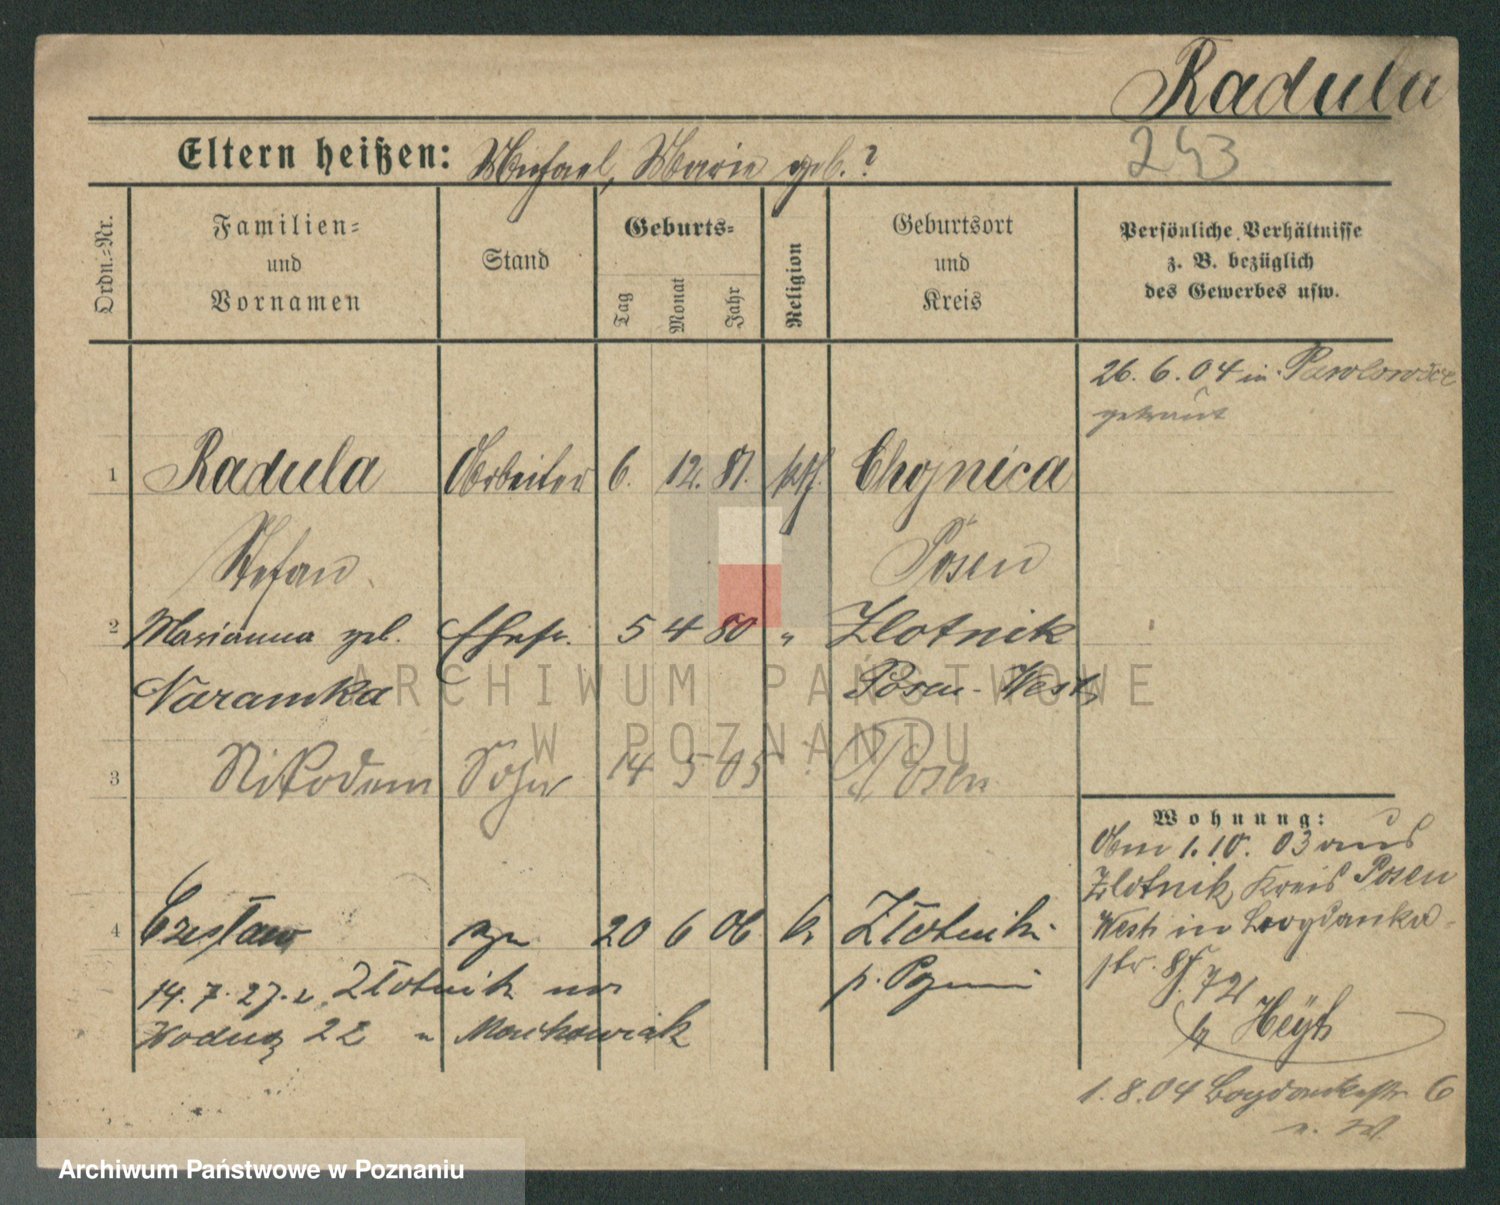 Radula
243
Eltern heißen: Michael, Marie geb. ?
Ordn.-Nr.
Familien-
und
Vornamen
Stand
Geburts-
Tag
Monat
Jahr
Religion
Geburtsort
und
Kreis
Persönliche Verhältnisse
z. B. bezüglich
des Gewerbes usw.
26. 6. 04 in
getraut
1 Radula Arbeiter 6. 12. 81. kth. Chojnica
Stefan Posen
2 Marianna geb. Ehefr. 5 4 80 " Zlotnik
Posen-West
3 Nikodem Sohn 14 5 05 Posen
4 Czesław syn 20 6 06 k Złotnik
p. Pozn
14. 7. 27. z Złotnik na
Wodna 22 u Maćkowiak
Wohnung:
Am 1. 10. 03 aus
Zlotnik, Kreis Posen
West in Bogdanka-
str.
b/ Heyh
1. 8. 04 Bogdankastr. 6
ARCHIWUM PAŃSTWOWE
W POZNANIU
Archiwum Państwowe w Poznaniu